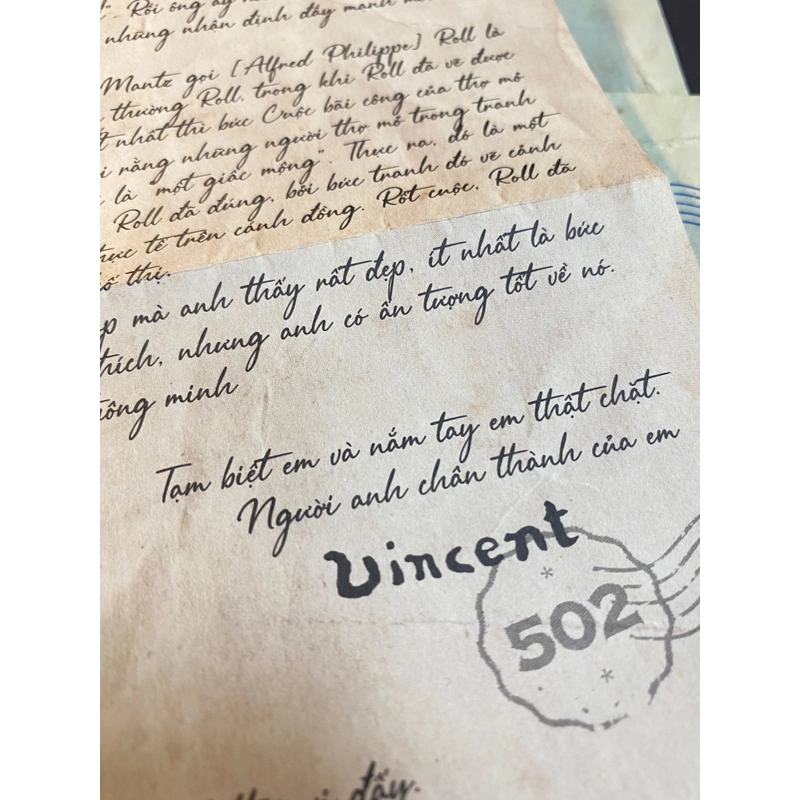 Rồi ông ấy
những nhận định đầy mạnh
Mantz gọi [Alfred Philippe] Roll là
thường Roll, trong khi Roll đã vẽ được
nhất thì bức Cuộc bãi công của thợ mỏ
rằng những người thợ mỏ trong tranh
là "một giấc mộng". Thực ra, đó là một
Roll đã đúng, bởi bức tranh đó vẽ cảnh
thực tế trên cánh đồng. Rốt cuộc, Roll đã
thị.
mà anh thấy rất đẹp, ít nhất là bức
thích, nhưng anh có ấn tượng tốt về nó.
minh
Tạm biệt em và nắm tay em thật chặt.
Người anh chân thành của em
Vincent
502
đấy.